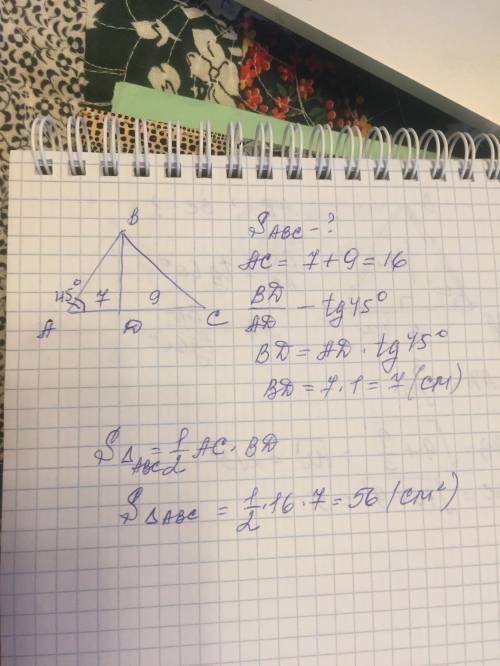 B
45° 7 9
A D C
S_ABC - ?
AC = 7 + 9 = 16
BD/AD - tg 45°
BD = AD · tg 45°
BD = 7 · 1 = 7 (см)
S_ΔABC = 1/2 AC · BD
S_ΔABC = 1/2 · 16 · 7 = 56 (см²)